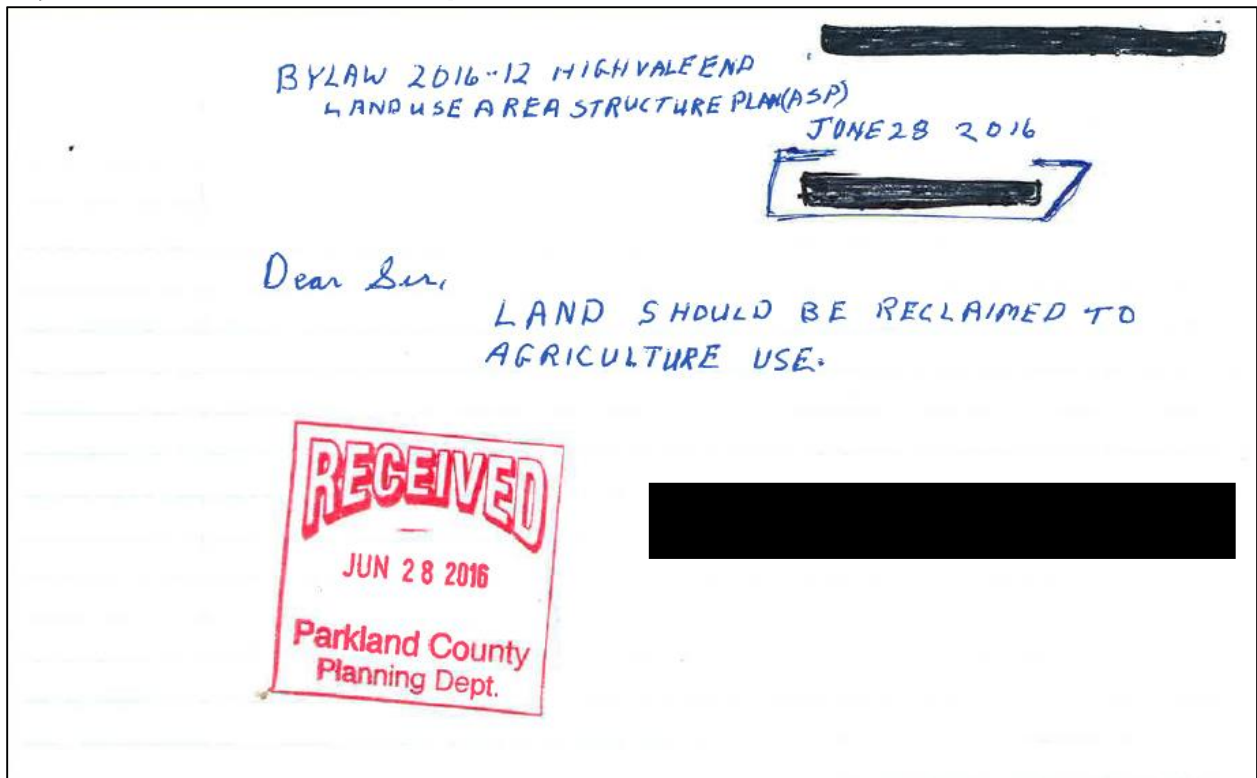 BYLAW 2016-12 HIGHVALE END
LAND USE AREA STRUCTURE PLAN (ASP)
JUNE 28 2016
Dear Sir,
LAND SHOULD BE RECLAIMED TO
AGRICULTURE USE.
RECEIVED
JUN 28 2016
Parkland County
Planning Dept.